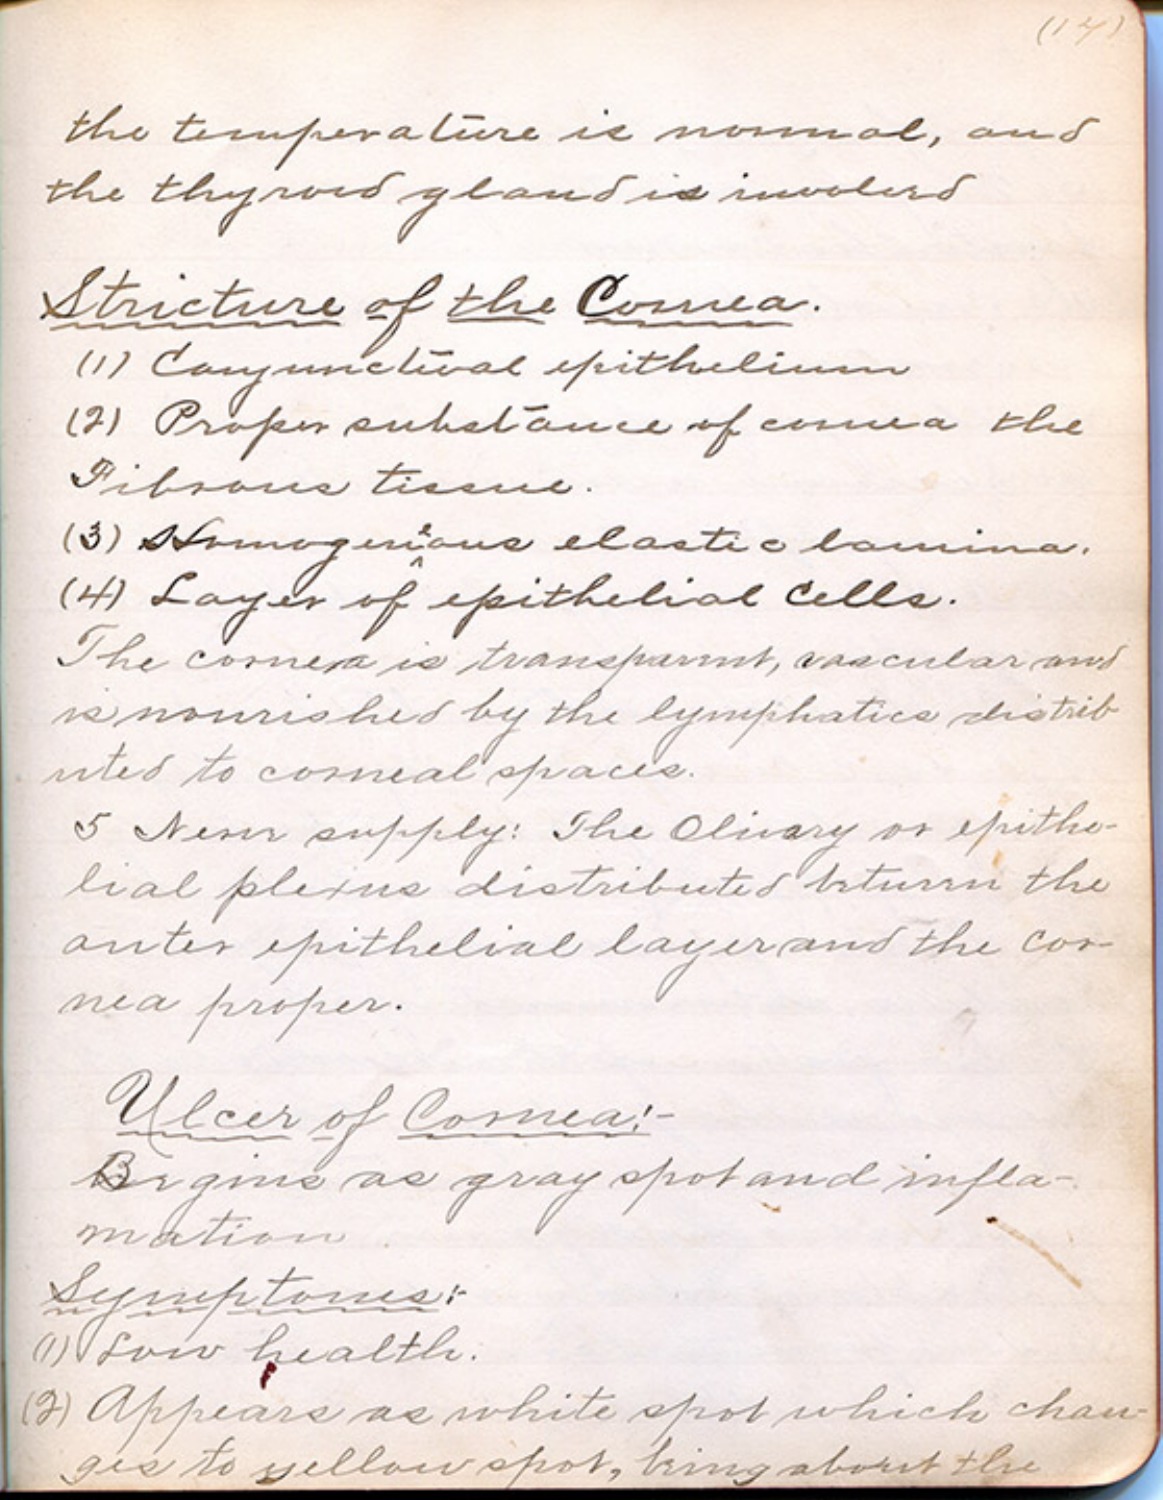 (14)
the temperature is normal, and
the thyroid gland is involved
Stricture of the Cornea.
(1) Conjunctival epithelium
(2) Proper substance of cornea the
Fibrous tissue.
(3) Homogeneous elastic lamina.
(4) Layer of epithelial cells.
The cornea is transparent, vascular and
is nourished by the lymphatics distrib
uted to corneal spaces.
5 Nerve supply: The Olivary or epithe-
lial plexus distributed between the
outer epithelial layer and the cor-
nea proper.
Ulcer of Cornea:-
Begins as gray spot and infla-
mation
Symptoms:-
(1) Low health.
(2) Appears as white spot which chan-
ges to yellow spot, bring about the